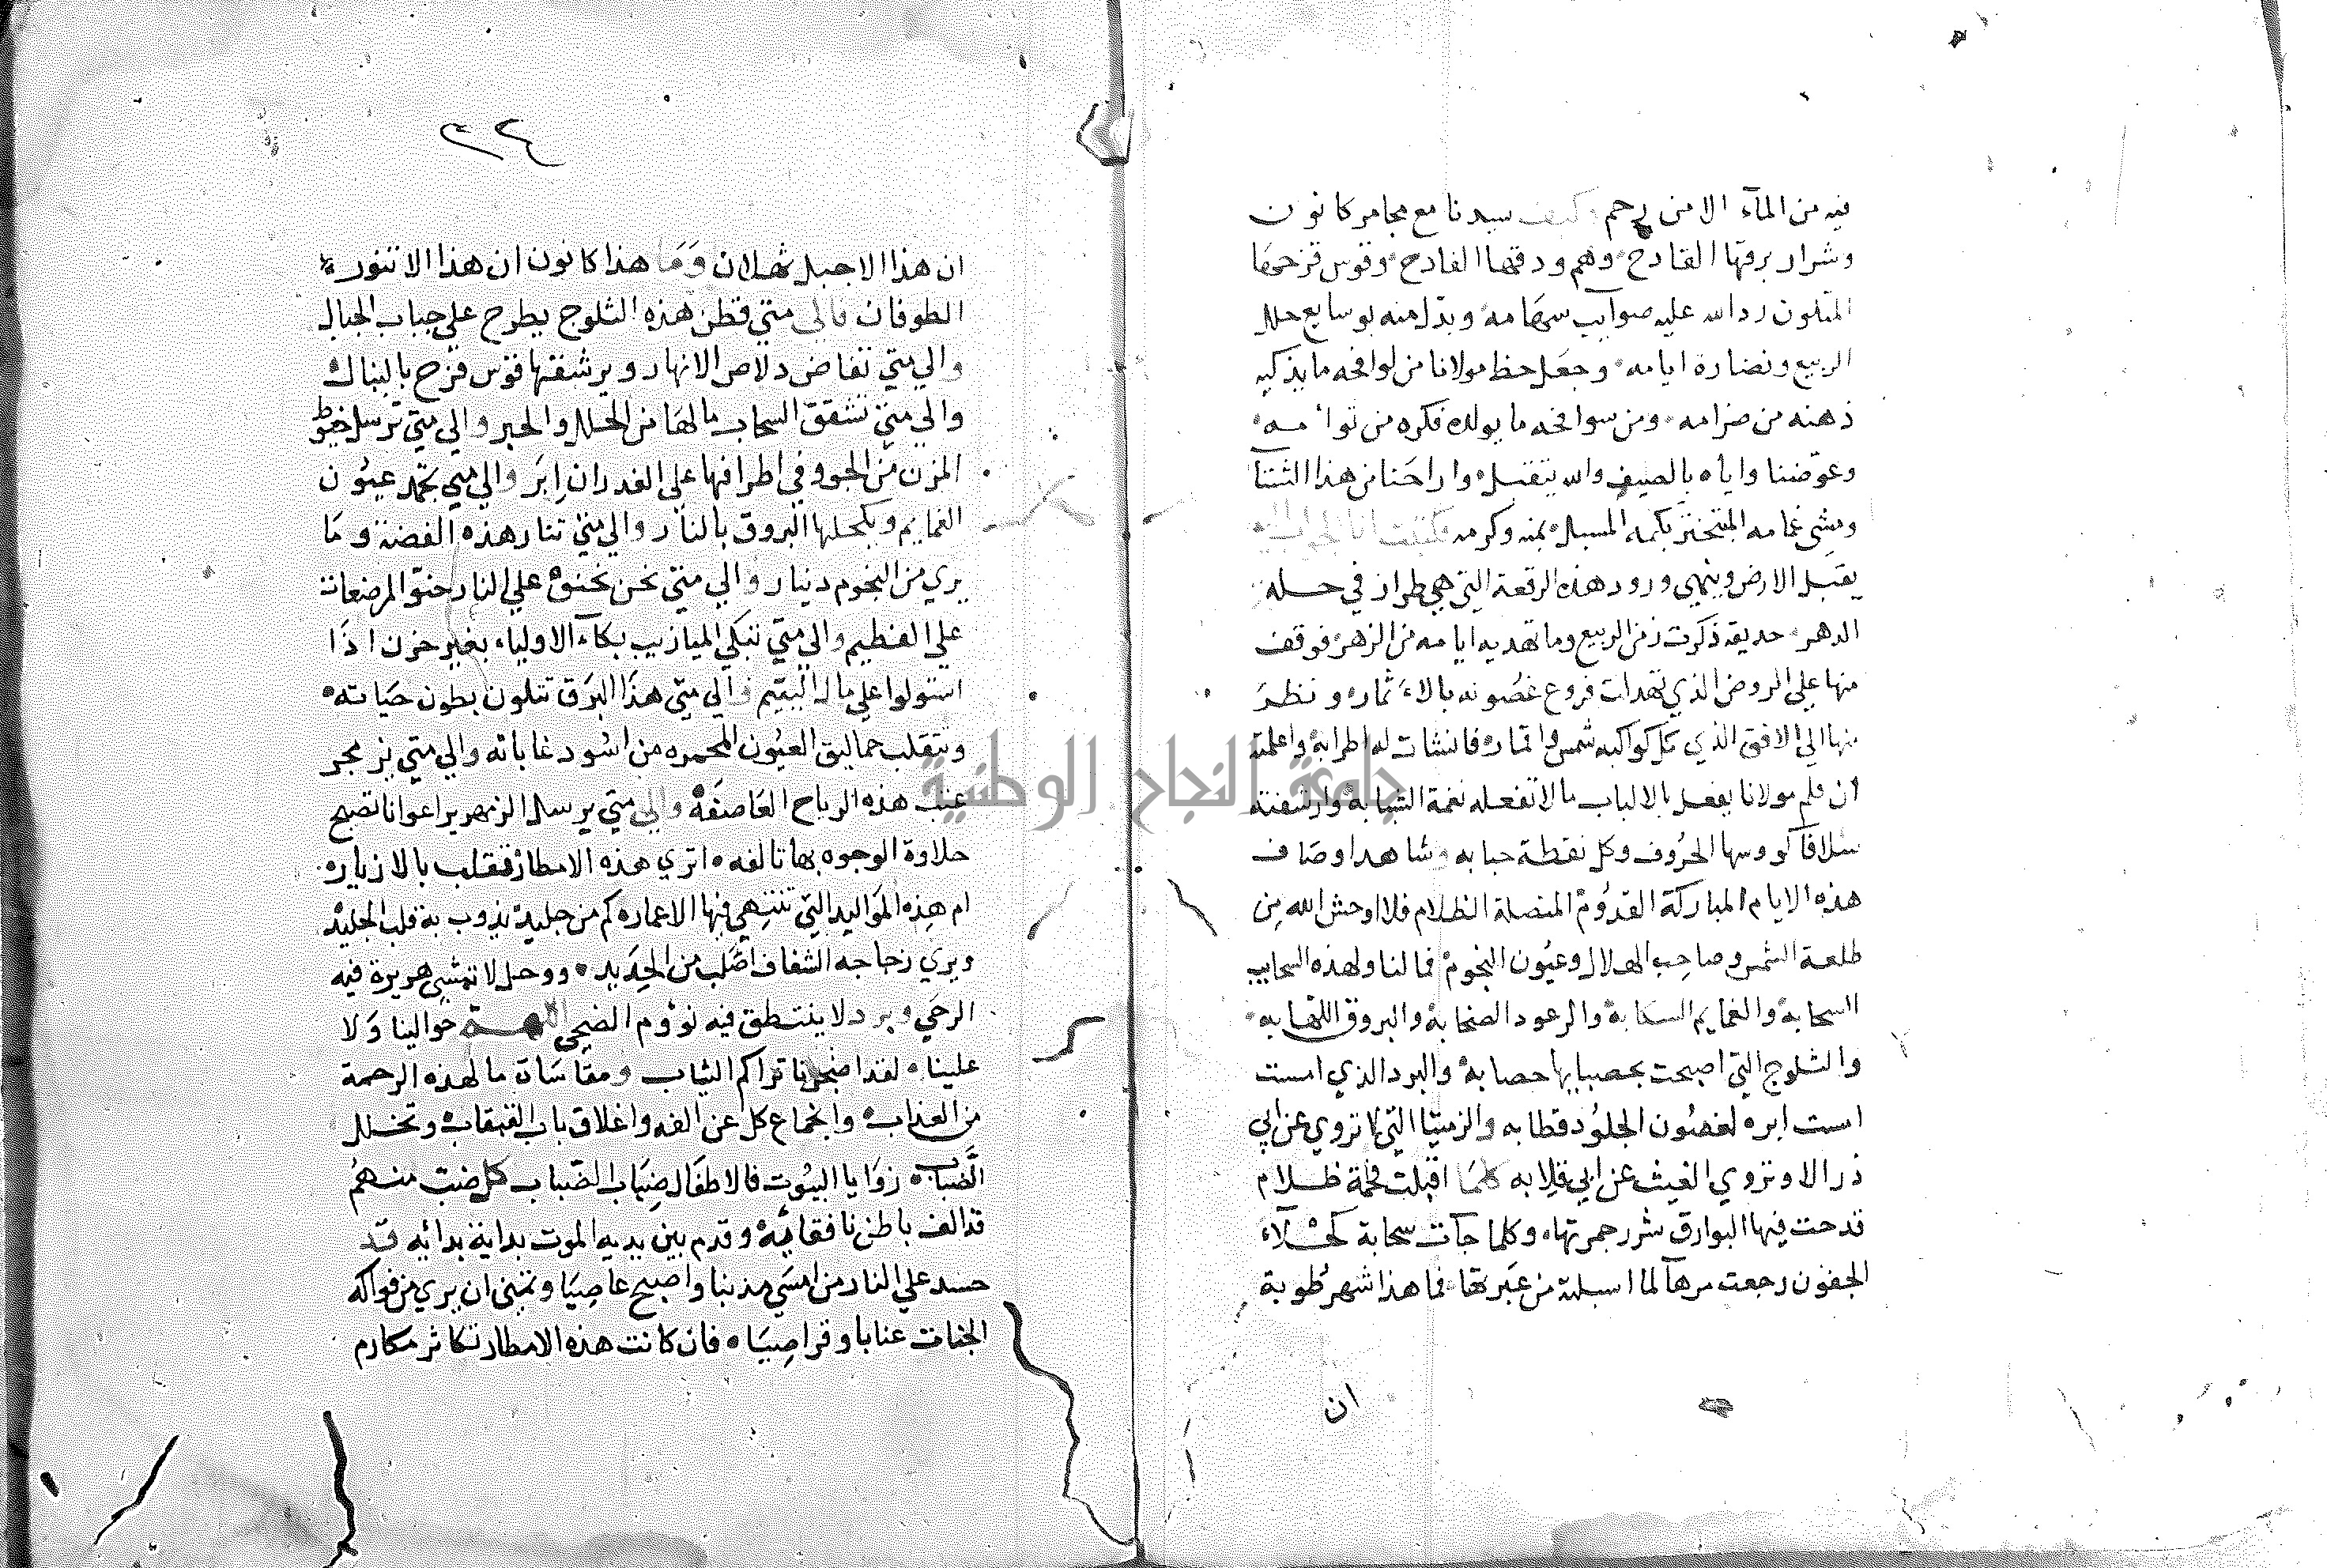 فيه من المآء الا من رحم وكيف سيدنا مع مجامر كانون
وشرار برقها القادح وهم ودقها الفادح وقوس قزحها
المتلون رد الله عليه صوآيب سهامه وبدل منه بوسايع حلل
الربيع ونضارة ايامه وجعل حظ مولانا من لوافحه ما يذكيه
ذهنه من ضرامه ومن سوافحه ما يولده فكره من توأمه
وعوضنا واياه بالصيف والله يتقبل واراحنا من هذا الشتآ
ومشى غمامه المتبختر بكمه المسبل بمنه وكرمه فكتبت انا الجواب اليه
يقبل الارض وينهي ورود هذه الرقعة التي هي طراز في حلة
الدهر حديقه ذكرت زمن الربيع وما تهديه ايامه من الزهر فوقف
منها علي الروض الذي تهدلت فروع غصونه بالاثمار ونظر
منها الي الافق الذي كل كواكبه شمس واقمار فانشات له اطرابه واعلمته
ان قلم مولانا يفعل بالالباب ما لا تفعله نغمة الشبابه وارشفته
سلافا كووسها الحروف وكل نقطة حبابه وشاهد اوصاف
هذه الايام المباركة القدوم المتصلة الظلام فلا اوحش الله من
طلعة الشمس وصاحب الهلال وعيون النجوم فما لنا ولهذه السحايب
السحابه والغمايم السكابه والرعود الصخابه والبروق اللهابه
والثلوج التي اصبحت بحصبايها حصابه والبرد الذي امست
امست ابره لغصون الجلود قطابه والزميتا التي لا تروي عن ابي
ذر الا وتروي الغيث عن ابي قلابه كلما اقبلت فحمة ظلام
قدحت فيها البوارق شرر جمرتها وكلما جآت سحابة كحلاء
الجفون رجعت مرهآ لما اسبلته من عبرتها فما هذا شهر طوبة
ان
٣٤
ان هذا الا جبل ثهلان وما هذا كانون ان هذا الا تنور
الطوفان فالي متي قطن هذه الثلوج يطرح علي جباب الجبال
والي متي تفاض دلاص الانهار ويرشقها قوس قزح بالنبال
والي متي تشقق السحاب مالها من الحلل والحبر والي متي ترسل خيوط
المزن من الجو وفي اطرافها علي الغدران ابر والي متي تجمد عيون
الغمايم وتكحلها البروق بالنار والي متي تنار هذه الفضة وما
يري من النجوم دينار والي متي نحن نحنو علي النار حنو المرضعات
علي الفطيم والي متي تبكي الميازيب بكآء الاولياء بغير حزن اذا
استولوا علي مال اليتيم والي متي هذا البرق تتلون بطون حياته
وتتقلب حماليق العيون المحمره من اسود غاباته والي متي يزمجر
عتب هذه الرياح العاصفه والي متي يرسل الزمهرير اعوانا تصبح
حلاوة الوجوه بها تالفه اتري هذه الامطار تقلب بالازيار
ام هذه المواليد التي تنتهي فيها الاعمار كم من جليد يذوب به قلب الجليد
ويري زجاجه الشفاف اصلب من الحديد ووحل لا تمشي هريرة فيه
الرحي وبرد لا ينتطق فيه نؤوم الضحي اللهم حوالينا ولا
علينا لقد اضجرنا تراكم الثياب ومقاسات ما لهذه الرحمة
من العذاب وانجماع كل عن الفه واغلاق باب القبقاب وتخلل
الضباب زوايا البيوت فالاطفال ضباب الضباب كل ضب منهم
قد الف باطن نافقائه وقدم بين يديه الموت بداية بدائه قد
حسد علي النار من امسي مذنبا واصبح عاصيا وتمني ان يري من فواكه
الجنات عنابا وقراصيا فان كانت هذه الامطار تكاثر مكارم
جامعة النجاح الوطنية